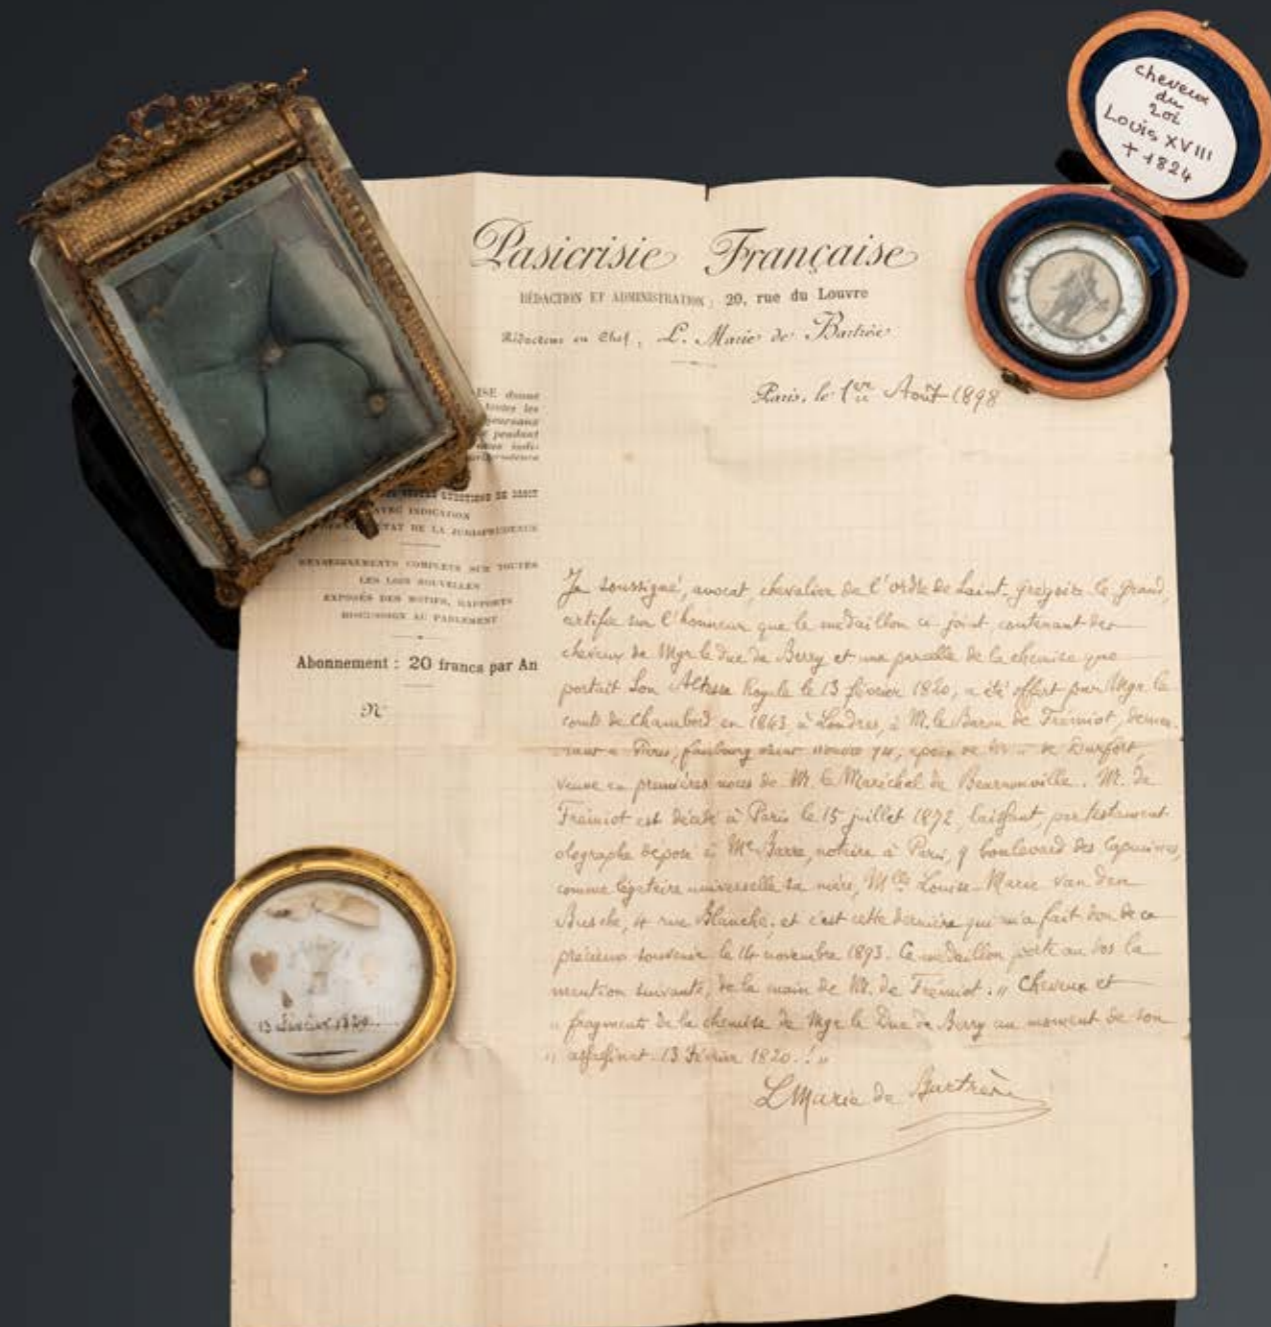 cheveux
du
roi
Louis XVIII
+ 1824
Pasicrisie Française
RÉDACTION ET ADMINISTRATION : 20, rue du Louvre
Rédacteur en Chef, L. Marie de
Paris, le 1er Août 1898
ISE donne
toutes les
pendant
jurisprudence
QUESTIONS DE DROIT
AVEC INDICATION
ÉTAT DE LA JURISPRUDENCE
RENSEIGNEMENTS COMPLETS SUR TOUTES
LES LOIS NOUVELLES
EXPOSÉS DES MOTIFS, RAPPORTS
DISCUSSION AU PARLEMENT
Abonnement : 20 francs par An
N
Je soussigné, avocat, chevalier de l'ordre de Saint-Grégoire le Grand,
certifie sur l'honneur que le médaillon ci joint, contenant des
cheveux de Mgr le Duc de Berry et une parcelle de la chemise que
portait Son Altesse Royale le 13 février 1820, a été offert par Mgr le
comte de Chambord en 1843, à Londres, à M. le Baron de Frémiot, demeu-
rant à Paris, faubourg Saint Honoré 74, époux de de Durfort,
veuve en premières noces de M. le Maréchal de Beurnonville. M. de
Frémiot est décédé à Paris le 15 juillet 1872, laissant, par testament
olographe déposé à Me notaire à Paris, 9 boulevard des Capucines,
comme légataire universelle sa Mlle Louise-Marie Van den
4 rue Blanche, et c'est cette dernière qui m'a fait don de ce
précieux souvenir le 14 novembre 1893. Ce médaillon porte au dos la
mention suivante, de la main de M. de Frémiot. „ Cheveux et
„ fragments de la chemise de Mgr le Duc de Berry au moment de son
„ assassinat. 13 Février 1820. ! „
L Marie de
13 Février 1820.